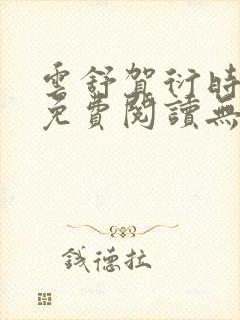 雲舒賀衍時
免費閱讀無
錢德拉